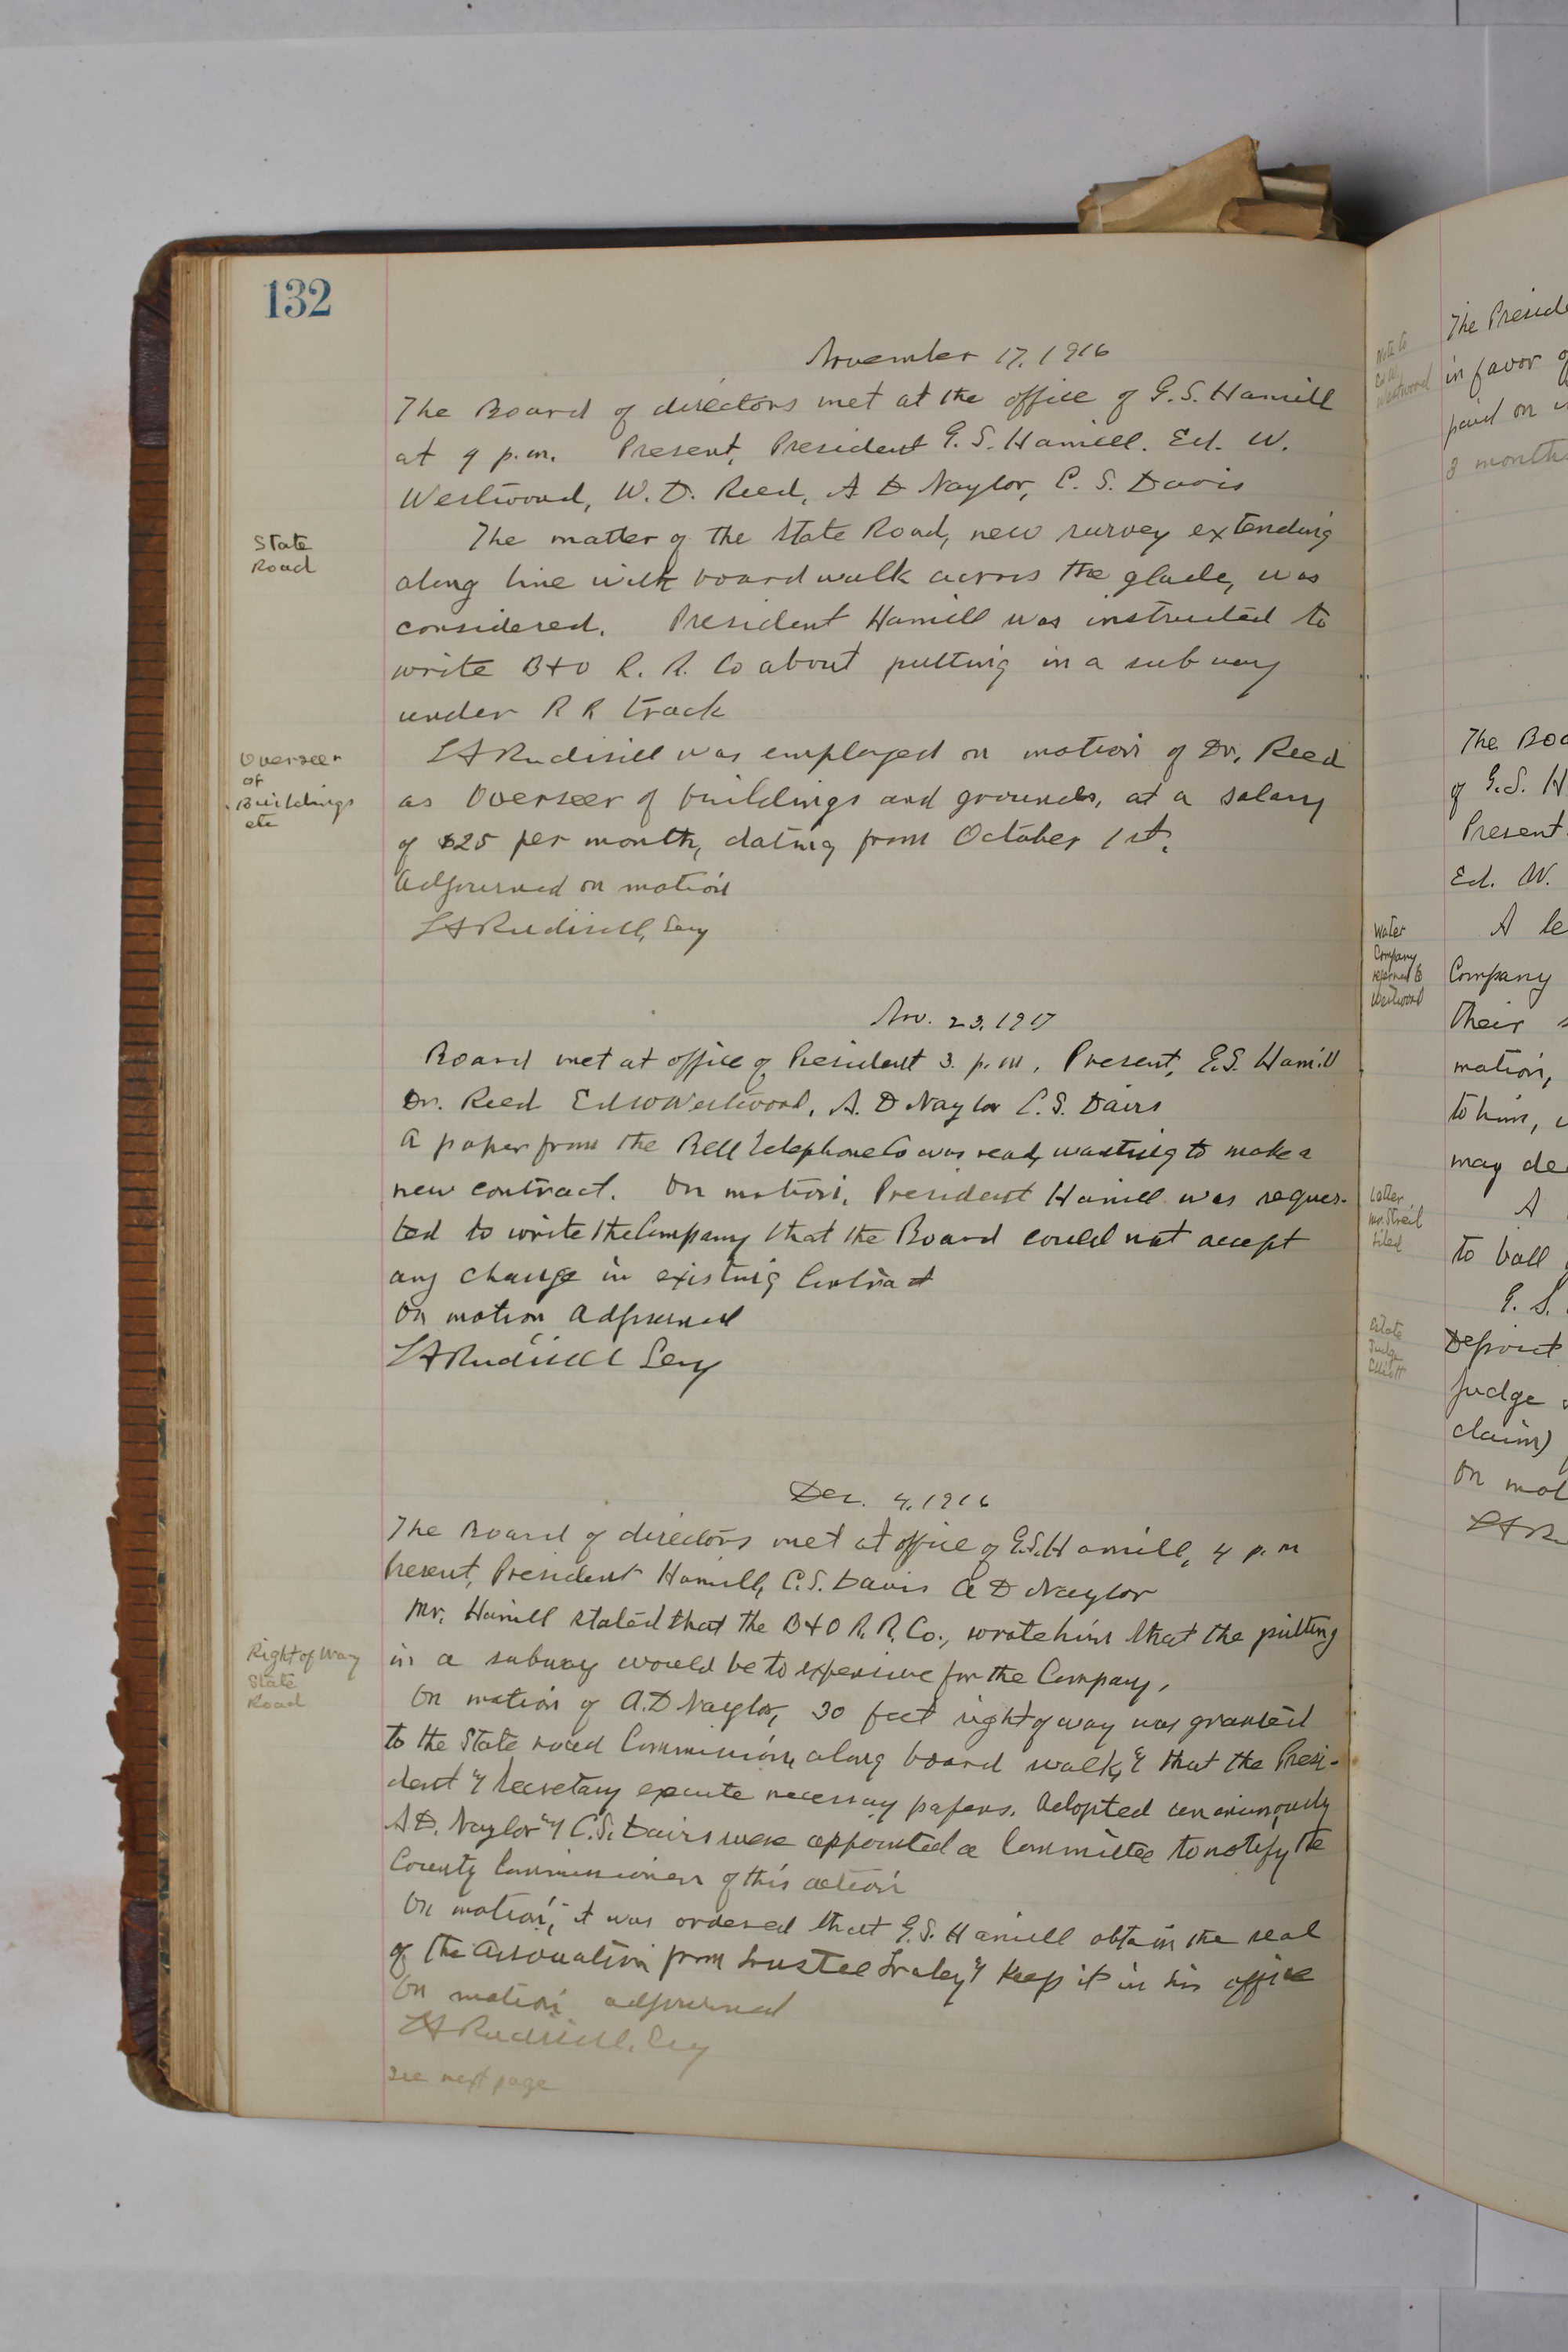 132
November 17, 1916
The Board of directors met at the office of G. S. Hamill
at 4 p.m. Present, President G. S. Hamill. Ed. W.
Westwood, W. D. Reed, A D Naylor, C. S. Davis
State
Road
The matter of the State Road, new survey extending
along line with boardwalk across the glade, was
considered. President Hamill was instructed to
write B+O R. R. Co about putting in a subway
under R R track
Overseer
of
Buildings
etc
L A Rudisill was employed on motion of Dr. Reed
as Overseer of buildings and grounds, at a salary
of $25 per month, dating from October 1st.
Adjourned on motion
L A Rudisill, Secy
Nov. 23, 1917
Board met at office of President 3. p.m. Present, G.S. Hamill
Dr. Reed Ed W Westwood, A. D Naylor C. S. Davis
A paper from the Bell Telephone Co was read, wanting to make a
new contract. On motion, President Hamill was reques-
ted to write the Company that the Board could not accept
any change in existing Contract
On motion adjourned
L A Rudisill Secy
Dec. 4, 1916
The Board of directors met at office of G.S. Hamill, 4 p.m
Present, President Hamill, C. S. Davis A D Naylor
Mr. Hamill stated that the B+O R. R. Co., wrote him that the putting
Right of Way
State
Road
in a subway would be to expensive for the Company.
On motion of A. D Naylor, 30 feet right of way was granted
to the State road Commission, along board walk, & that the Presi-
dent & Secretary execute necessary papers. Adopted unanimously
A. D. Naylor & C. S. Davis were appointed a Committee to notify the
County Commissioners of this action
On motion, it was ordered that G. S. Hamill obtain the seal
of the Association from trustee Fraley & keep it in his office
On motion adjourned
L A Rudisill, Secy
See next page
Note to
Ed W.
Westwood
The Preside
in favor of
paid on
3 months
The Boa
of G. S. H
Present
Ed. W.
Water
Company
referred to
Westwood
A le
Company
their s
motion,
to him,
may de
Letter
Mr. Streib
filed
A
to ball
G. S.
Judge
Elliott
Deposit
judge
claim)
On mot
L A R